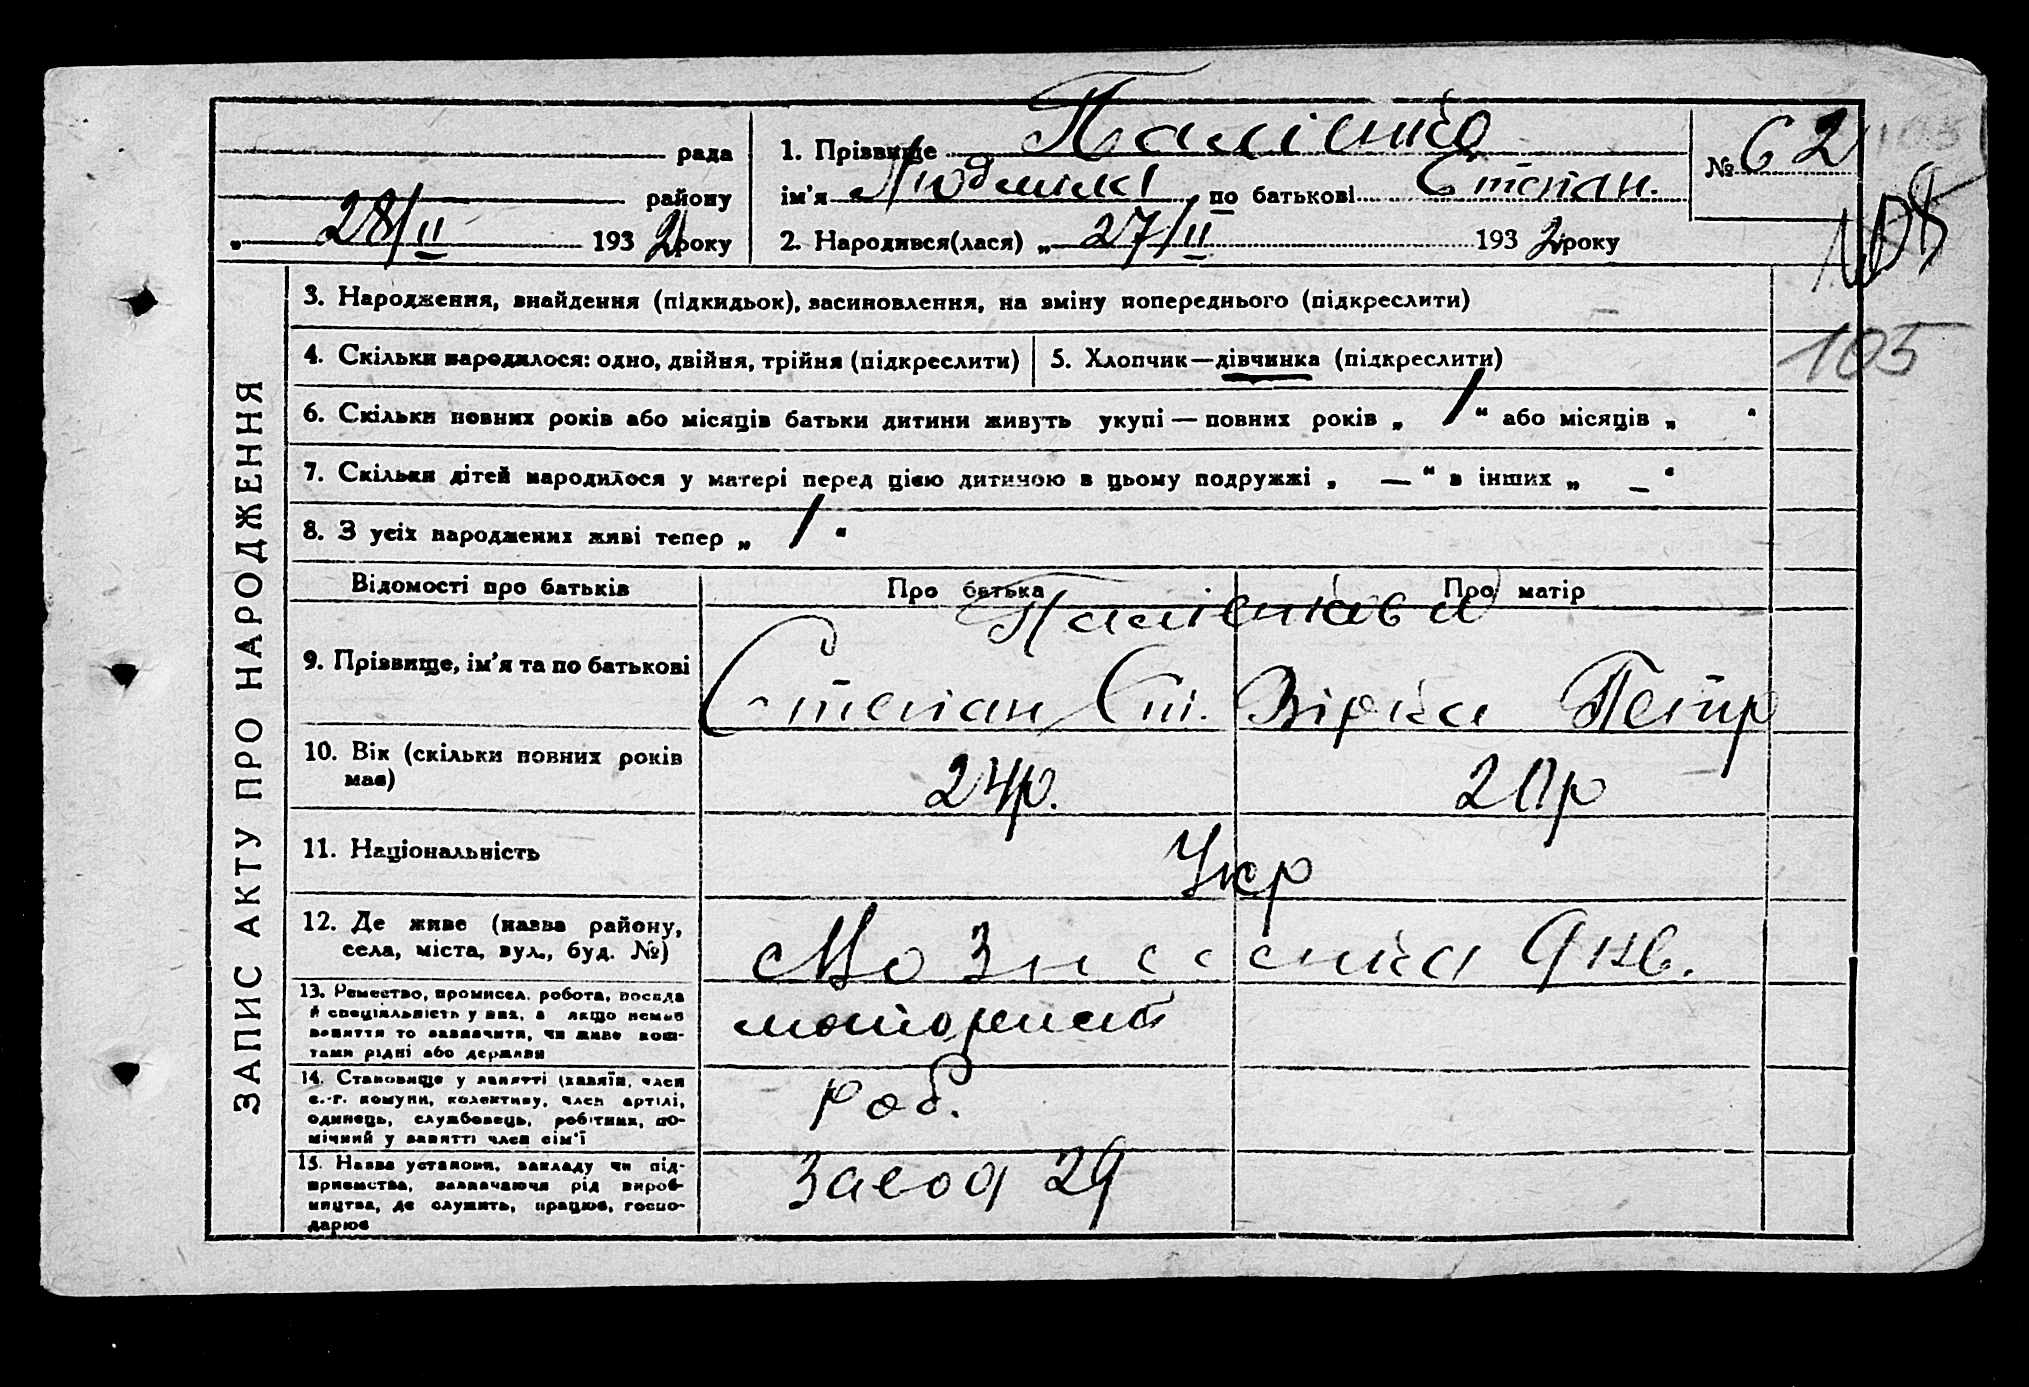 рада
району
„ 28/II 1932 року
1. Прізвище
ім'я по батькові Степан.
2. Народився(лася) „ 27/II 1932 року
№ 62
105
ЗАПИС АКТУ ПРО НАРОДЖЕННЯ
3. Народження, знайдення (підкидьок), засиновлення, на зміну попереднього (підкреслити)
4. Скільки народилося: одно, двійня, трійня (підкреслити)
5. Хлопчик—дівчинка (підкреслити)
6. Скільки повних років або місяців батьки дитини живуть укупі — повних років „ 1 “ або місяців „ “
7. Скільки дітей народилося у матері перед цією дитиною в цьому подружжі „ — “ в інших „ — “
8. З усіх народжених живі тепер „ 1 “
Відомості про батьків
Про батька
Про матір
9. Прізвище, ім'я та по батькові
Степан Ст.
Вірка Петр
10. Вік (скільки повних років
має)
24р.
20р
11. Національність
Укр
12. Де живе (назва району,
села, міста, вул., буд. №)
Вознесенка 9 кв.
13. Ремество, промисел. робота, посада
й спеціяльність у них, а якщо немає
заняття то зазначити, чи живе кош-
тами рідні або держави
моторист
14. Становище у занятті (хазяїн, член
с.-г. комуни, колективу, член артілі,
одинець, службовець, робітник, по-
мічний у занятті член сім'ї
роб.
15. Назва установи, закладу чи під-
приємства, зазначаючи рід вироб-
ництва, де служить, працює, госпо-
дарює
Завод 29